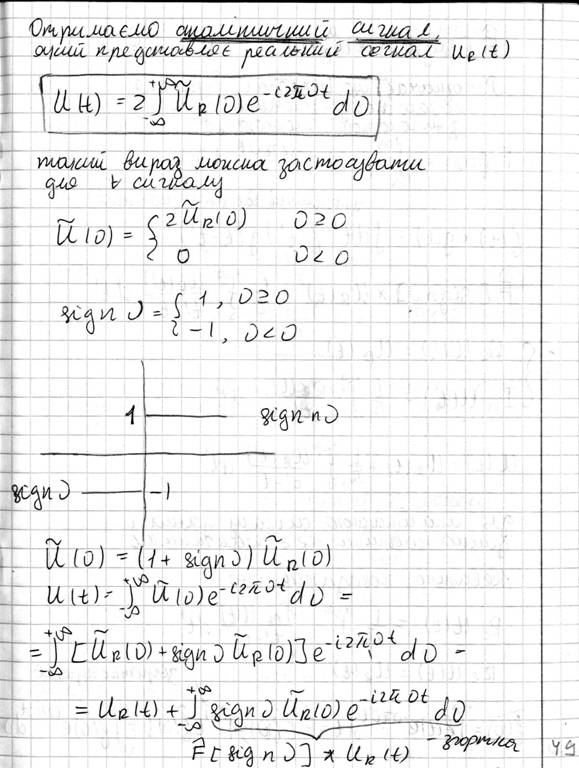 Отримаємо аналітичний сигнал,
який представляє реальний сегнал U_R(t)
U(t) = 2∫_{-∞}^{+∞} Ũ_R(υ)e^{-i2πυt} dυ
такий вираз можна застосувати
для ∀ сигналу
Ũ(υ) = { 2Ũ_R(υ) υ≥0
0 υ<0
sign υ = { 1, υ≥0
-1, υ<0
1 sign υ
sign υ -1
Ũ(υ) = (1+sign υ) Ũ_R(υ)
U(t) = ∫_{-∞}^{+∞} Ũ(υ)e^{-i2πυt} dυ =
= ∫_{-∞}^{+∞} [Ũ_R(υ)+sign υ Ũ_R(υ)] e^{-i2πυt} dυ -
= U_R(t) + ∫_{-∞}^{+∞} sign υ Ũ_R(υ) e^{-i2πυt} dυ
F̂[sign υ] * U_R(t) - згортка
49